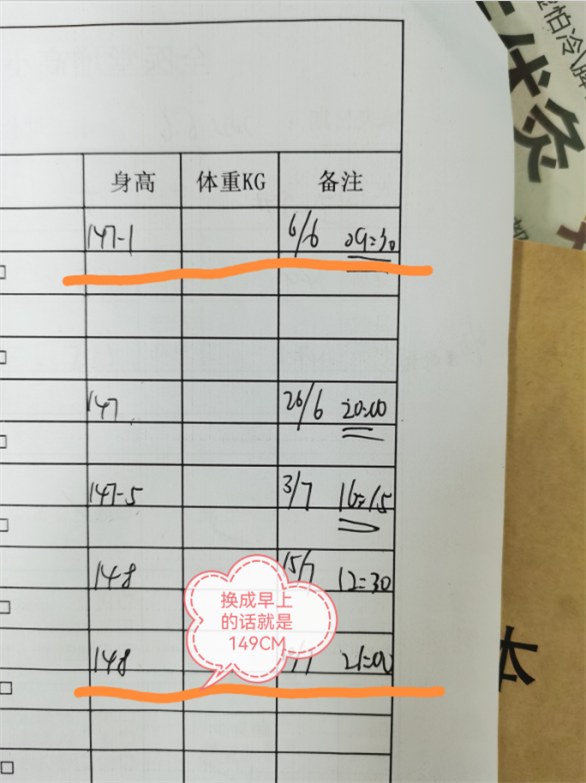 身高 体重KG 备注
147-1 6/6 09=30
147 26/6 20:00
147-5 3/7 16=15
148 15/7 12=30
换成早上
的话就是
149CM
148 21=00
伏灸
怕冷